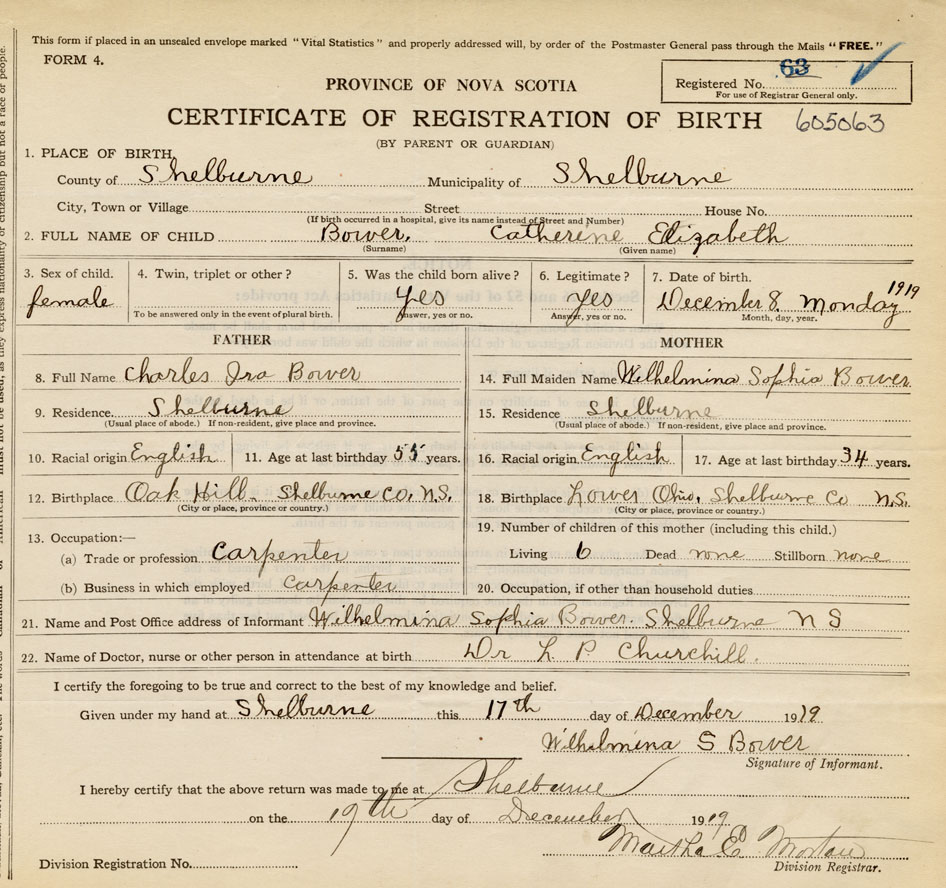 This form if placed in an unsealed envelope marked "Vital Statistics" and properly addressed will, by order of the Postmaster General pass through the Mails "FREE."
FORM 4.
Registered No. 63
For use of Registrar General only.
PROVINCE OF NOVA SCOTIA
CERTIFICATE OF REGISTRATION OF BIRTH 605063
(BY PARENT OR GUARDIAN)
1. PLACE OF BIRTH
County of Shelburne Municipality of Shelburne
City, Town or Village Street House No.
(If birth occurred in a hospital, give its name instead of Street and Number)
2. FULL NAME OF CHILD Bower, Catherine Elizabeth
(Surname) (Given name)
3. Sex of child. 4. Twin, triplet or other? 5. Was the child born alive? 6. Legitimate? 7. Date of birth.
female Yes Yes December 8, Monday 1919
To be answered only in the event of plural birth. Answer, yes or no. Answer, yes or no. Month, day, year.
FATHER MOTHER
8. Full Name Charles Ira Bower 14. Full Maiden Name Wilhelmina Sophia Bower
9. Residence. Shelburne 15. Residence Shelburne
(Usual place of abode.) If non-resident, give place and province. (Usual place of abode.) If non-resident, give place and province.
10. Racial origin English 11. Age at last birthday 55 years. 16. Racial origin English 17. Age at last birthday 34 years.
12. Birthplace Oak Hill- Shelburne Co. N.S. 18. Birthplace Lower Ohio, Shelburne Co N.S.
(City or place, province or country.) (City or place, province or country.)
19. Number of children of this mother (including this child.)
13. Occupation:—
(a) Trade or profession Carpenter Living 6 Dead none Stillborn none
(b) Business in which employed Carpenter 20. Occupation, if other than household duties
21. Name and Post Office address of Informant Wilhelmina Sophia Bower. Shelburne N S
22. Name of Doctor, nurse or other person in attendance at birth Dr L. P. Churchill.
I certify the foregoing to be true and correct to the best of my knowledge and belief.
Given under my hand at Shelburne this 17th day of December 1919
Wilhelmina S Bower
Signature of Informant.
I hereby certify that the above return was made to me at Shelburne
on the 19th day of December 1919
Martha E
Division Registration No. Division Registrar.